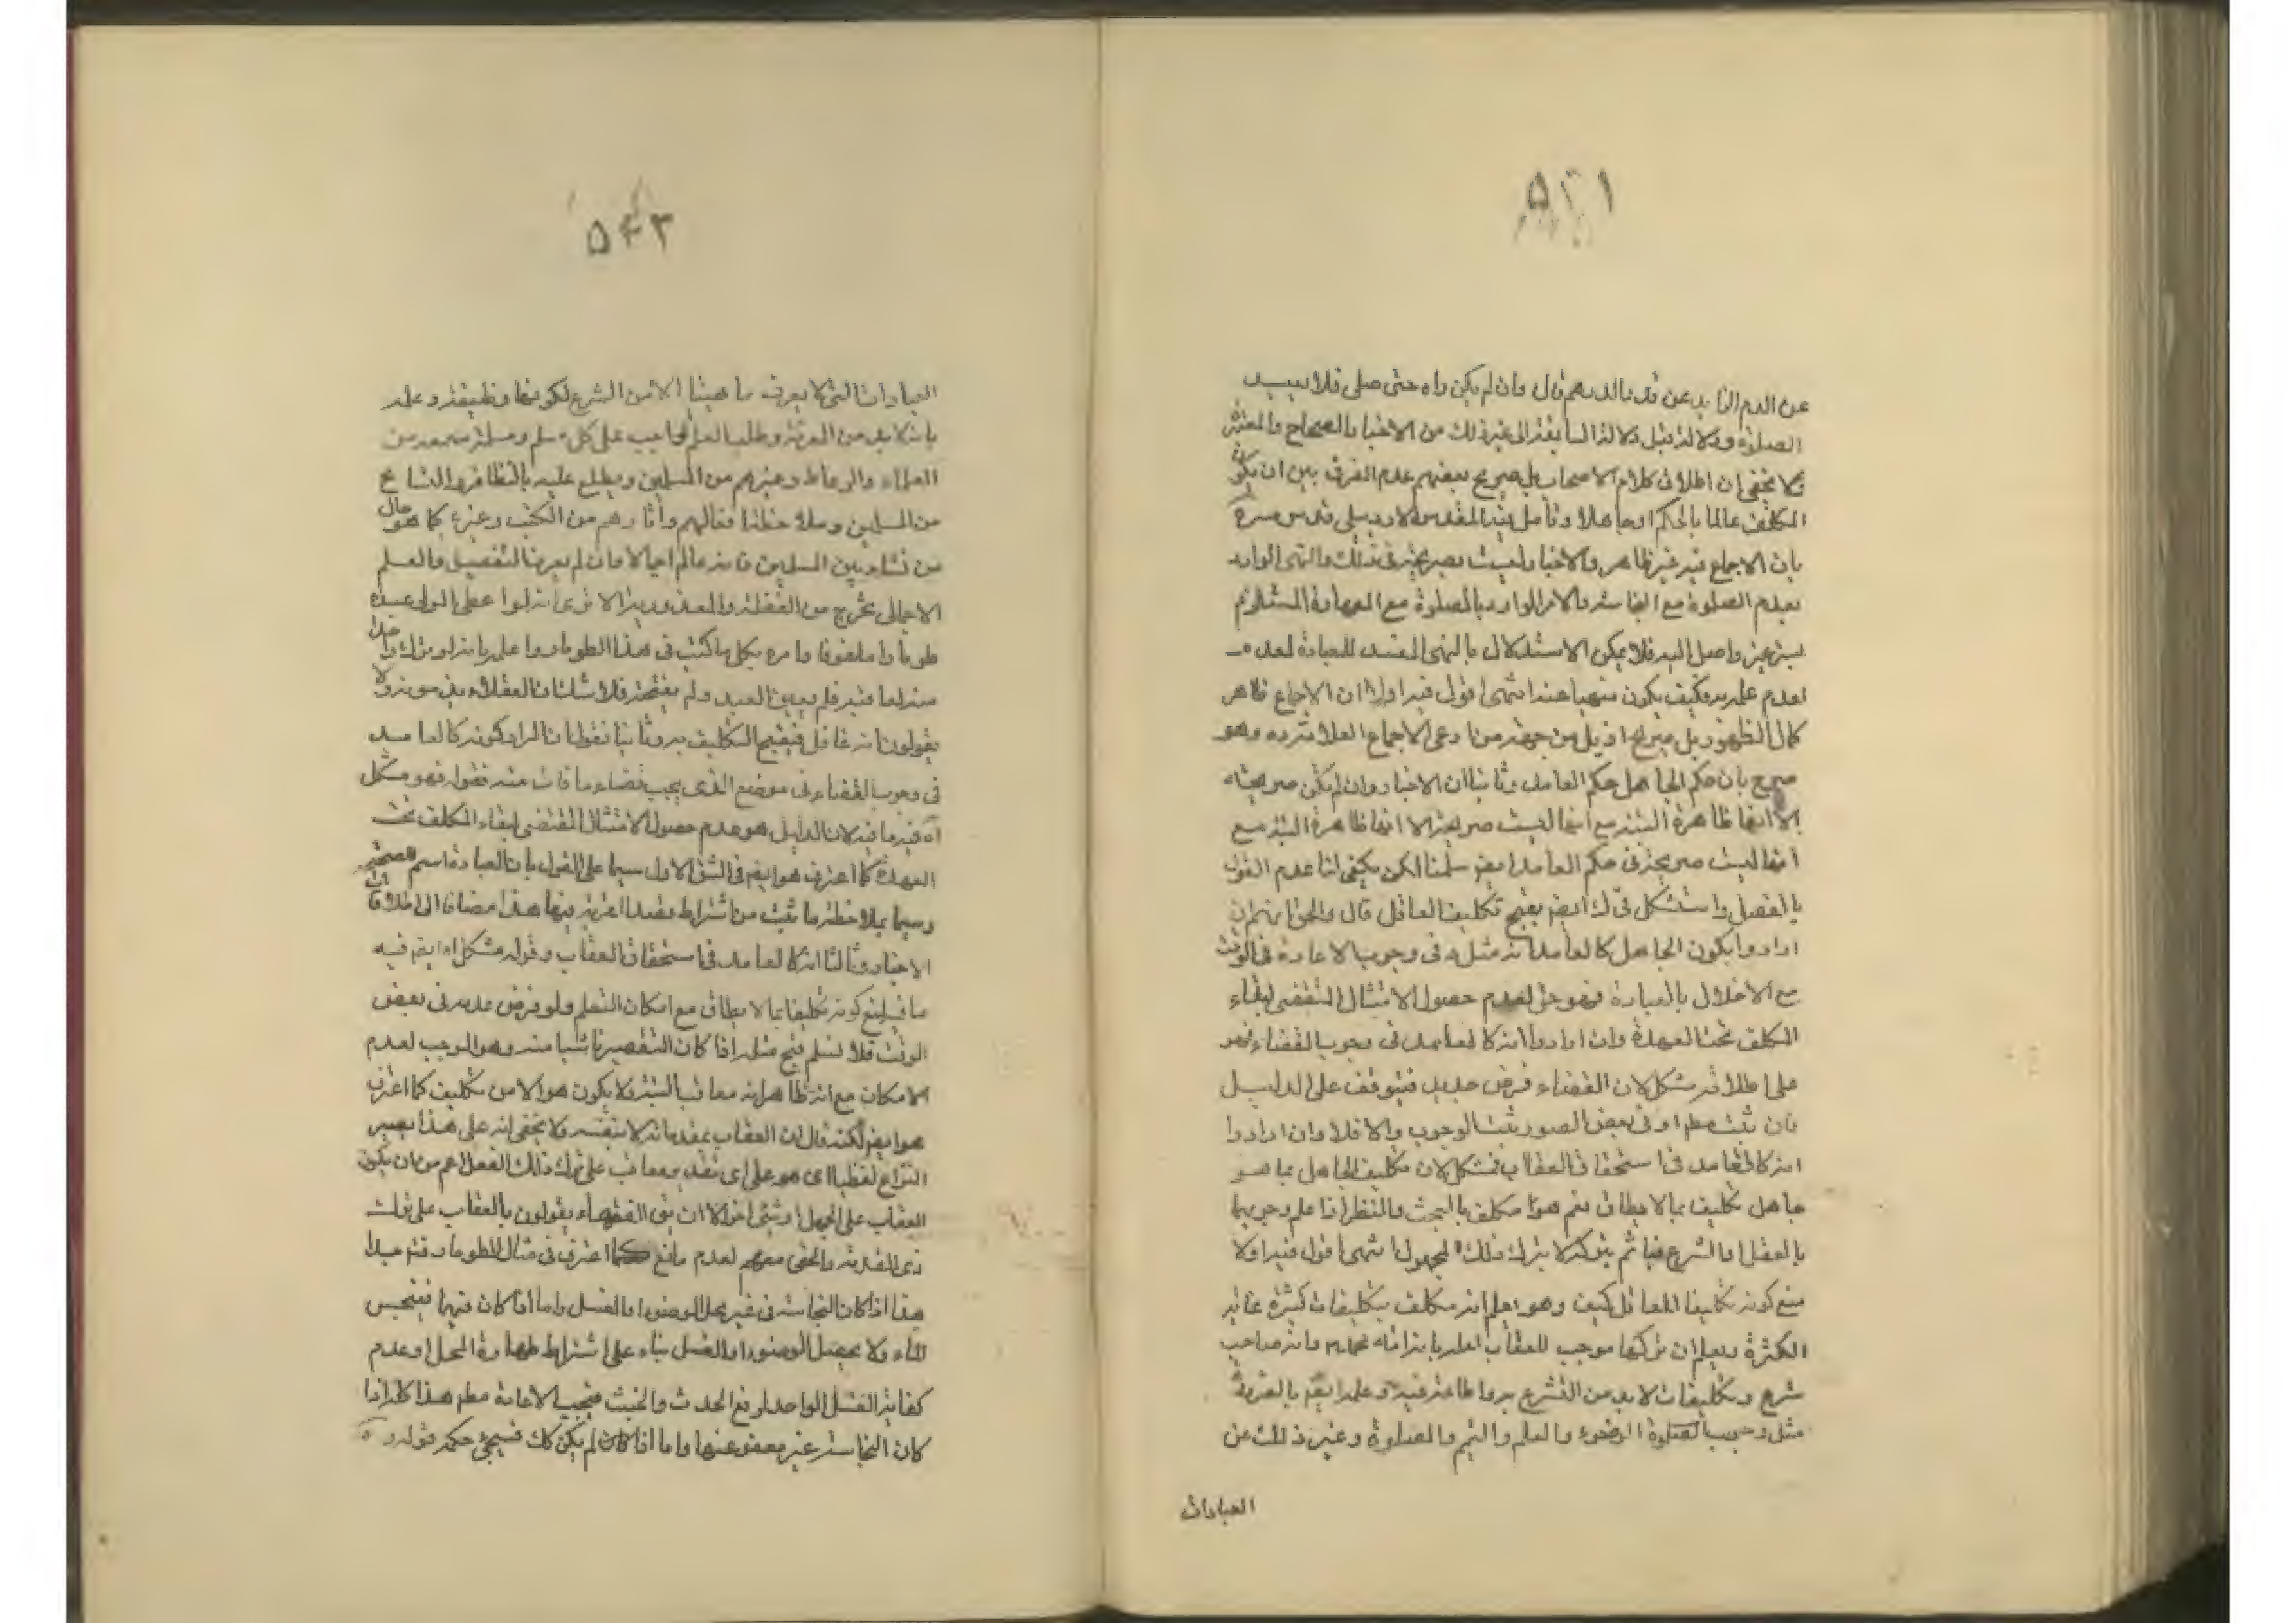 عن الدم الزايد عن قدر الدرهم قال وان لم يكن راه حتى صلى فلا يعيد
الصلوة ودلالته قبل دلالة السابقة الى غير ذلك من الاخبار الصحاح والمعتبرة
ولا يخفى ان اطلاق كلام الاصحاب بل صريح بعضهم عدم الفرق بين ان يكون
المكلف عالما بالحكم او جاهلا وتامل فيه المقدس الاردبيلى قدس سره
بان الاجماع فيه غير ظاهر والاخبار ليست بصريحة فى ذلك والنهى الوارد
بعدم الصلوة مع النجاسة والامر الوارد بالصلوة مع الطهارة المستلزم
له غير واصل اليه فلا يمكن الاستدلال بالنهى المفسد للعبادة لعدمه
لعدم علمه به فكيف يكون منهيا عنه انتهى اقول فيه اولا ان الاجماع ظاهر
كمال الظهور بل صريح اذ بل من جهته من ادعى الاجماع العلامة ره وهو
صرح بان حكم الجاهل حكم العامد وثانيا ان الاخبار وان لم تكن صريحة
الا انها ظاهرة البتة مع انها ليست صريحة الا انها ظاهرة البتة مع
انها ليست صريحة فى حكم العامد ايضا سلمنا لكن يكفى لنا عدم القول
بالفصل واستشكل فى ك ايضا بقبح تكليف الغافل قال والحق انهم ان
ارادوا بكون الجاهل كالعامد انه مثله فى وجوب الاعادة فى الوقت
مع الاخلال بالعبادة فهو حق لعدم حصول الامتثال المقتضى لبقاء
المكلف تحت العهدة وان ارادوا انه كالعامد فى وجوب القضاء فهو
على اطلاقه مشكل لان القضاء فرض جديد فيتوقف على الدليل
فان ثبت مطم او فى بعض الصور ثبت الوجوب والا فلا وان ارادوا
انه كالعامد فى استحقاق العقاب فمشكل لان تكليف الجاهل بما هو
جاهل تكليف بما لا يطاق نعم هو مكلف بالبحث والنظر اذا علم وجوبهما
بالعقل او الشرع فياثم بتركه لا بترك ذلك المجهول انتهى اقول فيه اولا
منع كونه تكليفا للغافل كيف وهو يعلم انه مكلف بتكليفات كثيرة غاية
الكثرة ويعلم ان تركها موجب للعقاب لعلمه بانه امة محمد ص وانه صاحب
شرع وتكليفات لابد من التشرع به واطاعته فيه وعلمه ايضا بالضرورة
مثل وجوب الصلوة الوضوء والعلم والتيمم والصلوة وغير ذلك من
العبادات
العبادات التى لا يعرف ماهيتها الا من الشرع لكونها وظيفته وعلمه
بانه لابد من المعرفة وطلب العلم واجب على كل مسلم ومسلمة سمعه من
العلماء والوعاظ وغيرهم من المسلمين ويطلع عليه بالتظافر والتسامع
من المسلمين وملاحظة افعالهم واثارهم من الكتب وغيره كما هو حال
من نشا بين المسلمين فانه عالم اجمالا وان لم يعرف التفصيل والعلم
الاجمالى يخرج من الغفلة والمعذورية الا ترى انه لو اعطى المولى عبده
طومارا ملفوفا وامره بكل ما كتب فى هذا الطومار واعلمه بانه لو ترك واحدا
منه لعاقبه فلم يعمل العبد ولم يفتحه فلا شك ان العقلاء يذمونه ولا
يقولون انه غافل فيقبح التكليف به وثانيا نقول ان المراد كونه كالعامد
فى وجوب القضاء فى موضع الذى يجب قضاء ما فات منه فقوله فهو مشكل
اه فيه ما فيه لان الدليل هو عدم حصول الامتثال المقتضى لبقاء المكلف تحت
العهدة كما اعترف هو ايضا فى الشق الاول سيما على القول بان العبادة اسم للصحيحة
وسيما بملاحظة ما ثبت من اشتراط قصد القربة فيها هذا مضافا الى اطلاقات
الاخبار وثالثا انه كالعامد فى استحقاق العقاب وقوله مشكل اه ايضا فيه
ما فيه لمنع كونه تكليفا بما لا يطاق مع امكان التعلم ولو فرض عدمه فى بعض
الوقت فلا نسلم قبح مثله اذا كان التقصير ناشيا منه وهو الموجب لعدم
الامكان مع انه ظاهرانه معاقب البتة ولا يكون هو الا من تكليف كما اعترف
هو ايضا لكنه قال ان العقاب بمقدماته لا بنفسه ولا يخفى انه على هذا يصير
النزاع لفظيا اى هو على اى تقدير معاقب على ترك ذلك الفعل اعم من ان يكون
العقاب على الجهل او شىء اخر الا ان بق الفقهاء يقولون بالعقاب على ترك
ذى المقدمة والحق معهم لعدم مانع كما اعترف فى مثال الطومار فتم جيدا
هذا اذا كان النجاسة فى غير محل الوضوء او الغسل واما اذا كان فيها فينجس
الماء ولا يحصل الوضوء او الغسل بناء على اشتراط طهارة المحل او عدم
كفاية الغسل الواحد لرفع الحدث والخبث فيجب الاعادة مطم هذا كله اذا
كان النجاسة غير معفو عنها واما اذا كان لم يكن كك فسيجئ حكمه قوله ره